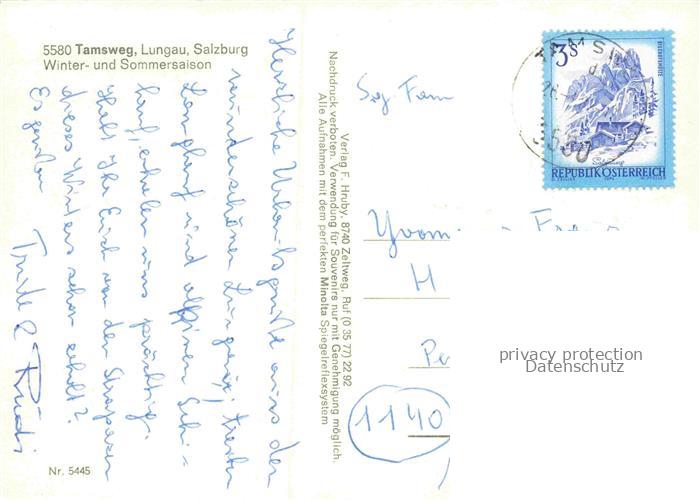 5580 Tamsweg, Lungau, Salzburg
Winter- und Sommersaison
Herzliche Urlaubsgrüße aus dem
wunderschönen Lungau, treiben
Langlauf und alpinen Schi-
lauf, erholen uns prächtig.
Habt Ihr Euch von den Strapazen
dieses Winters schon erholt?
Es grüßen
Trude & Rudi
Nr. 5445
Nachdruck verboten. Verwendung für Souvenirs nur mit Genehmigung möglich.
Verlag F. Hruby, 8740 Zeltweg, Ruf (0 35 77) 22 92
Alle Aufnahmen mit dem perfekten Minolta Spiegelreflexsystem
3S
BISCHOFSMÜTZE
Salzburg
REPUBLIK ÖSTERREICH
TAMSW
5580
Fam
H
Pe
1140
privacy protection
Datenschutz